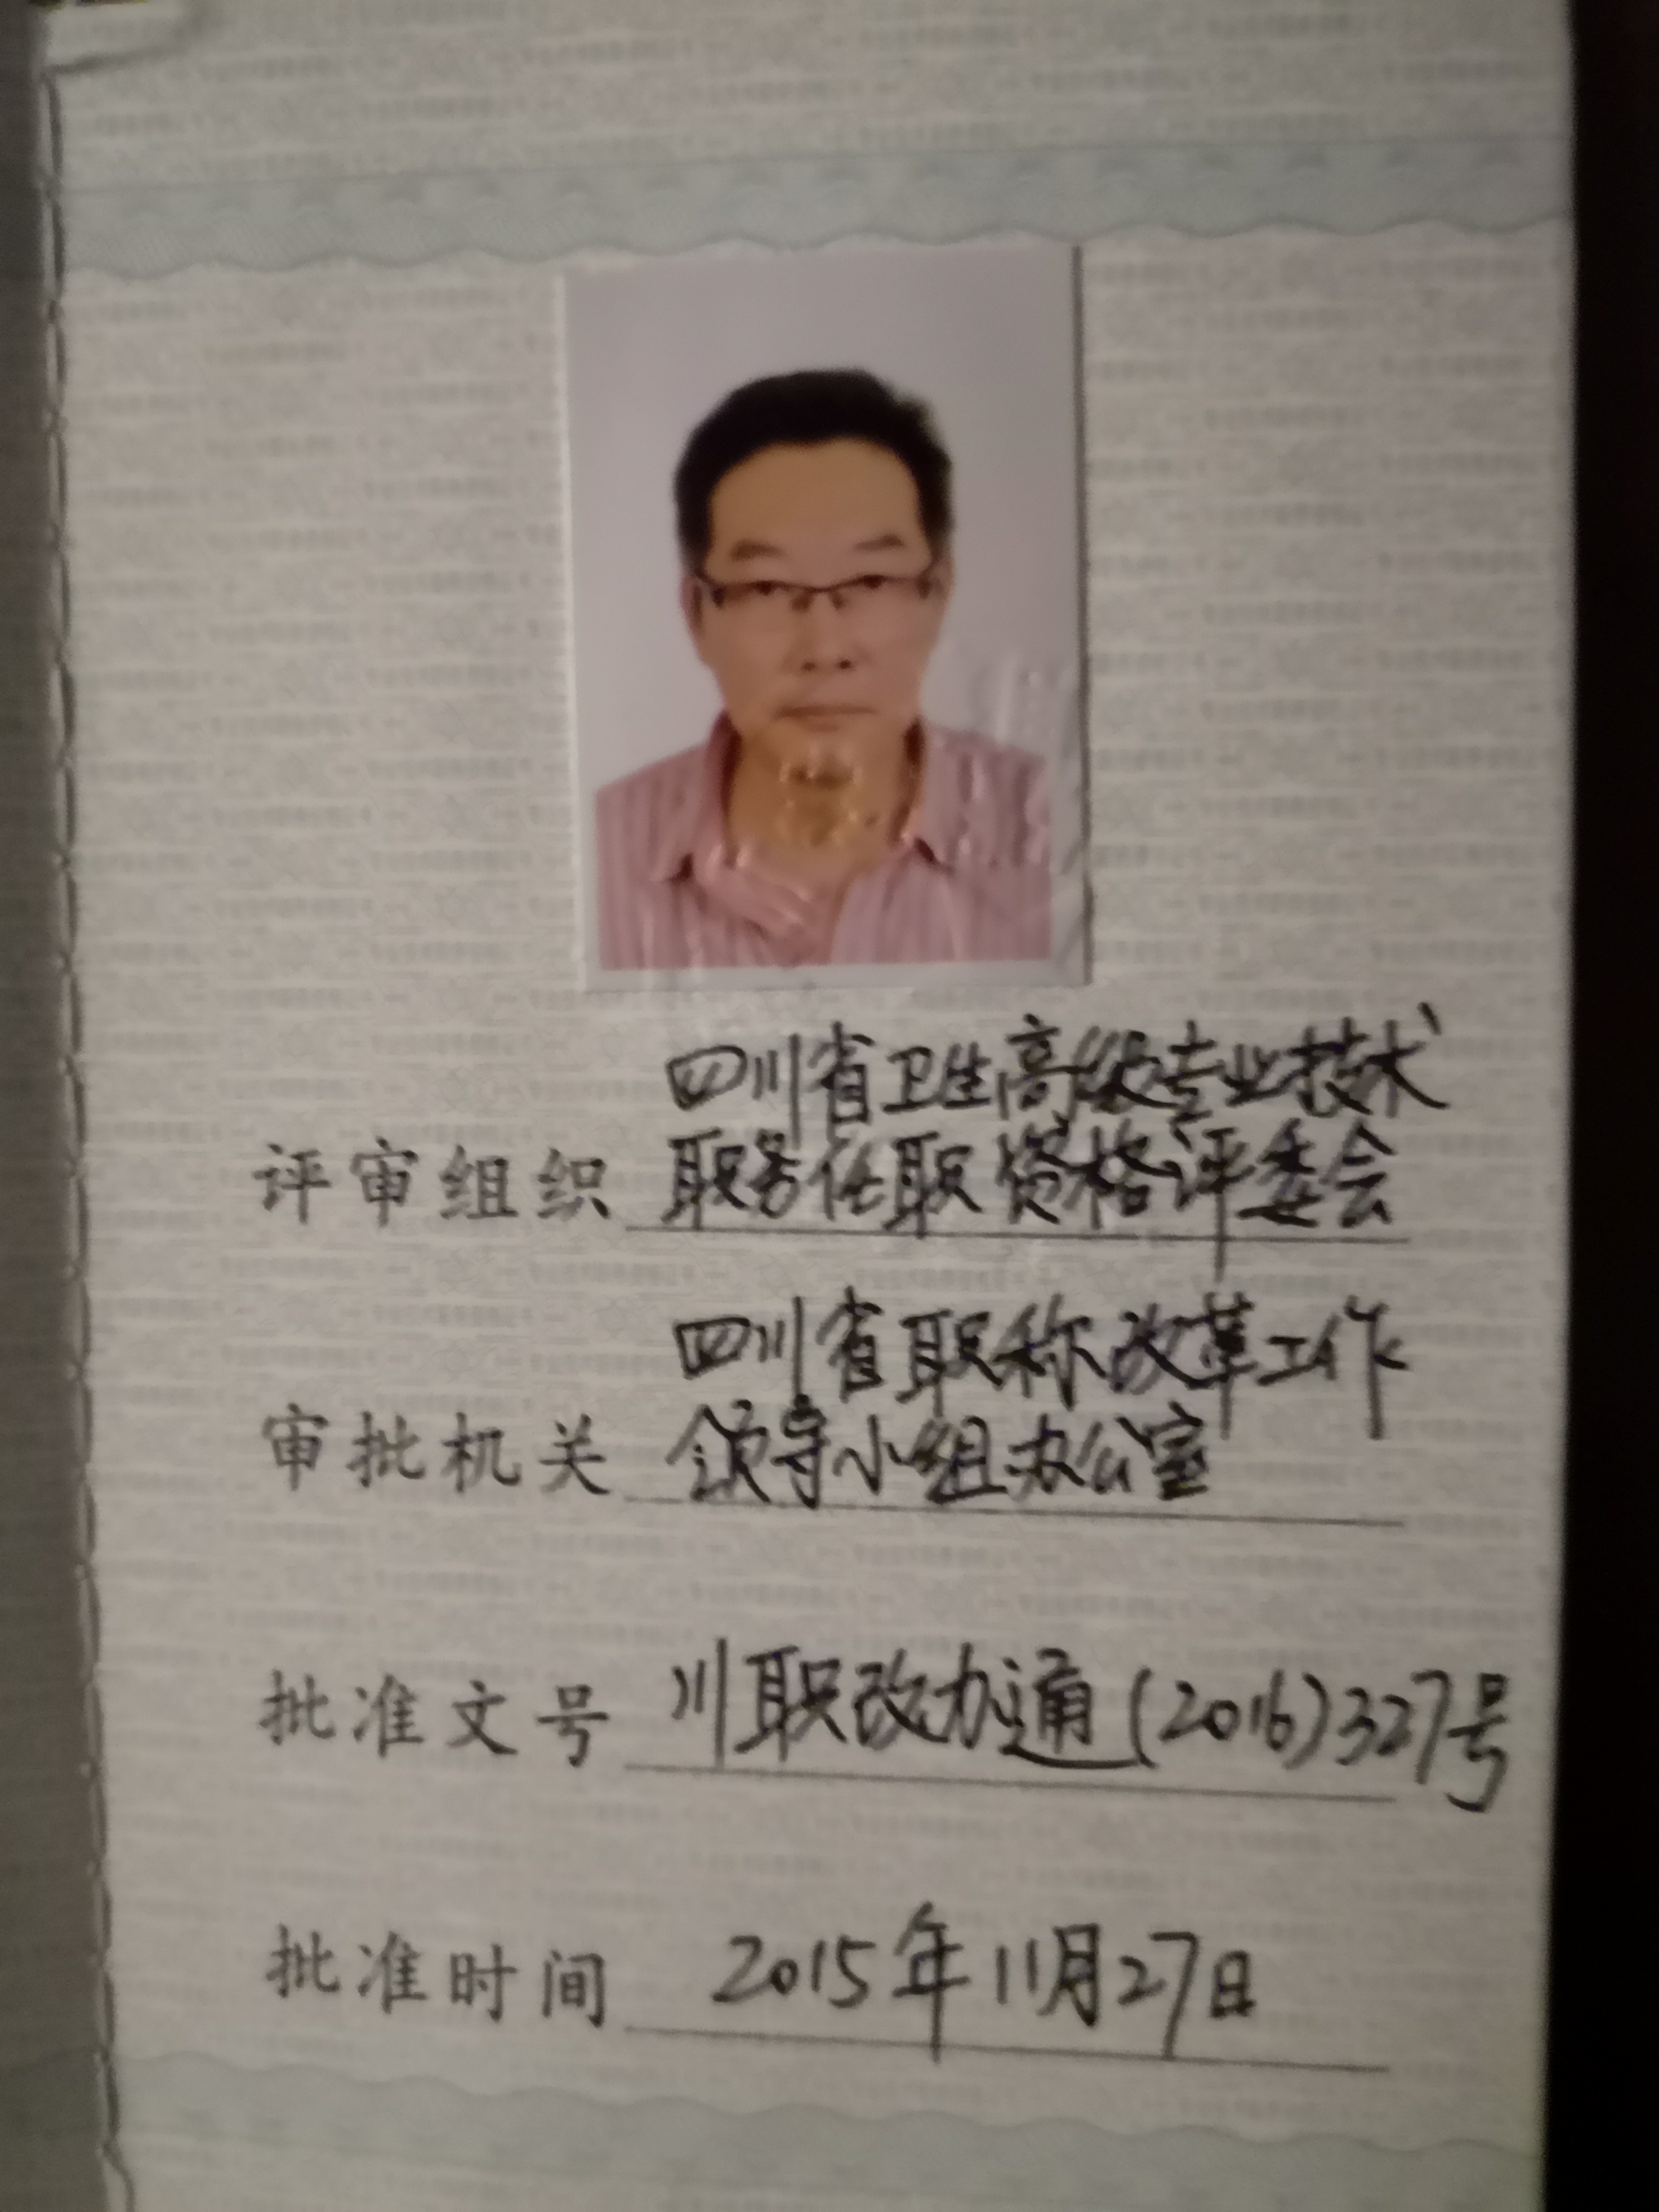 四川省卫生高级专业技术
评审组织 职务任职资格评委会
四川省职称改革工作
审批机关 领导小组办公室
批准文号 川职改办通(2016)327号
批准时间 2015年11月27日